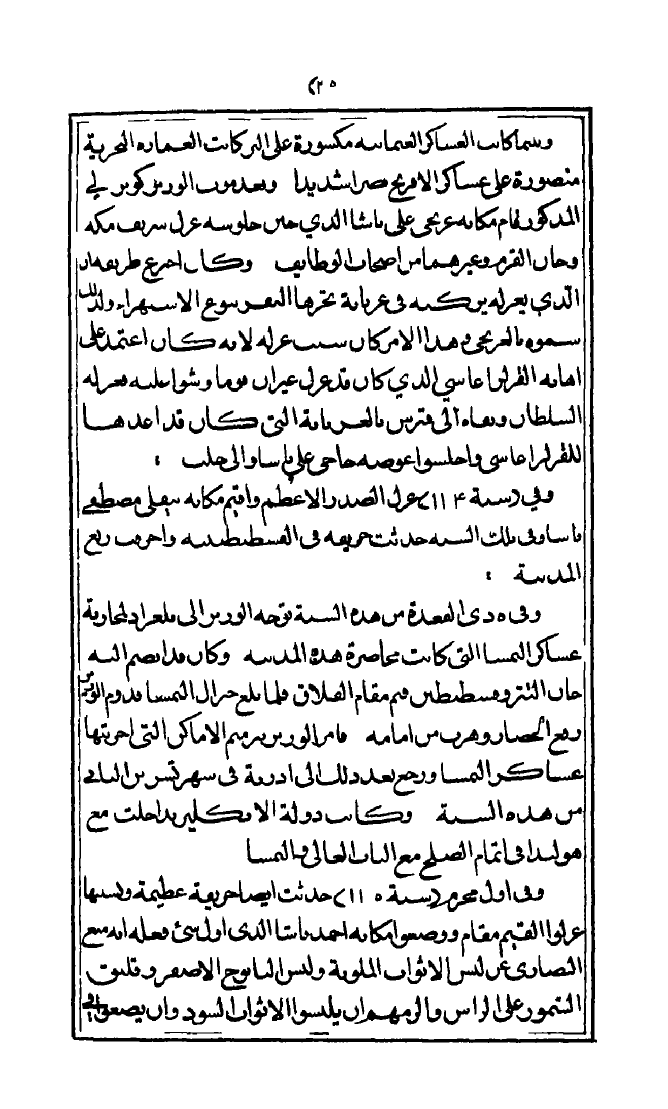 (٢٥
وبينما كانت العساكر العثمانيه مكسورة على البر كانت العماره البحرية
منصورة على عساكر الافرنج نصرا شديدا وبعد موت الوزير كوبر لي
المذكور قام مكانه عربجي علي باشا الذي حين جلوسه عزل شريف مكه
وخان القرم وغيرهما من اصحاب الوظايف وكان اخترع طريقه ان
الذي يعزله يركبه في عربانة تجرها البقر بنوع الاستهزاء ولذلك
سموه بالعربجي وهذا الامر كان سبب عزله لانه كان اعتمد على
اهانه القزلر اغاسي الذي كان قد عزل غير ان قوما وشوا عليه فعزله
السلطان ونفاه الى قبرس بالعربانة التي كان قد اعدها
للقزلر اغاسي واجلسوا عوضه حاجي علي باشا والي حلب :
وفي (سنة ١١٠٤) عزل الصدر الاعظم واقيم مكانه بيقلي مصطفى
باشا وفي تلك السنه حدثت حريقه في القسطنطينيه واحرقت ربع
المدينة :
وفي ٥ ذي القعدة من هذه السنة توجه الوزير الى بلغراد لمحاربة
عساكر النمسا التي كانت محاصرة هذه المدينه وكان قد انضم اليه
خان التتر وقسطنطين قيم مقام الفلاق فلما بلغ جنرال النمسا قدوم الوزير
رفع الحصار وهرب من امامه فامر الوزير بترميم الاماكن التي اخربتها
عساكر النمسا ورجع بعد ذلك الى ادرنة في شهر تشرين الثاني
من هذه السنة وكانت دولة الانكليز تداخلت مع
هولندا في اتمام الصلح مع الباب العالي والنمسا
وفي اول محرم (سنة ١١٠٥) حدثت ايضا حريقة عظيمة وبسببها
عزلوا القيم مقام ووضعوا مكانه احمد باشا الذي اول شئ فعله انه منع
النصارى عن لبس الاثواب الملونة ولبس البابوج الاصفر وقلبق
السمور على الراس والزمهم ان يلبسوا الاثواب السود وان يضعوا في